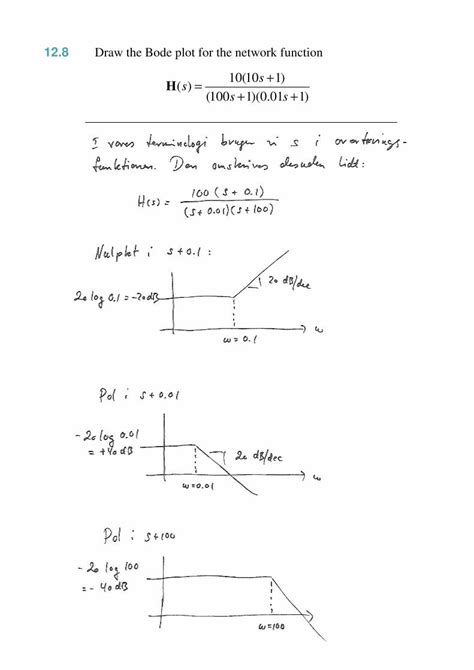 12.8 Draw the Bode plot for the network function
H(s) = 10(10s+1) / (100s+1)(0.01s+1)
I vores terminologi bruger vi s i overførings-
funktionen. Den omskrives desuden lidt:
H(s) = 100 (s + 0.1) / (s + 0.01)(s + 100)
Nulpkt i s + 0.1 :
20 dB/dec
20 log 0.1 = -20dB
ω
ω = 0.1
Pol i s + 0.01
- 20 log 0.01
= +40 dB
20 dB/dec
ω
ω = 0.01
Pol i s + 100
- 20 log 100
= - 40 dB
ω
ω = 100